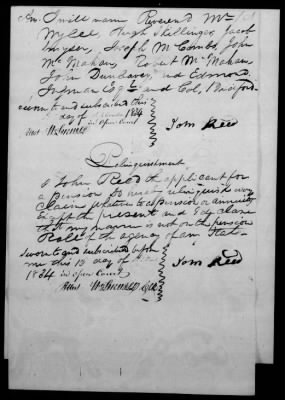 An. I will name Reverend Mr
Wylee, Hugh Shillinger, Jacob
Snyder, Joseph McCombs, John
McMahan, Robert McMahan,
John Dunlavey, and Edmond
Inman Esqr and Col, Bradford
sworn and subscribed this
day of 1834
in Open Court
Tom Reed
Relinquishment
I John Reed the applicant for
a pension do hereby relinquish every
claim whatever to a pension or annuity
except the present and I declare
that my name is not on the pension
Roll of the agency of any State
Sworn and subscribed before
me this 13 day of
1834 in open Court
Tom Reed